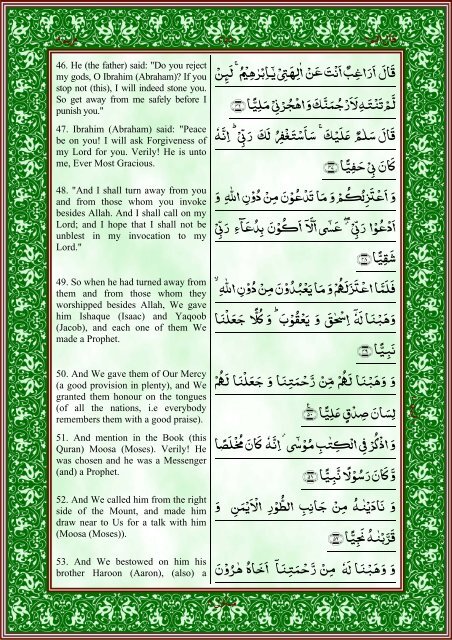 46. He (the father) said: "Do you reject
my gods, O Ibrahim (Abraham)? If you
stop not (this), I will indeed stone you.
So get away from me safely before I
punish you."
47. Ibrahim (Abraham) said: "Peace
be on you! I will ask Forgiveness of
my Lord for you. Verily! He is unto
me, Ever Most Gracious.
48. "And I shall turn away from you
and from those whom you invoke
besides Allah. And I shall call on my
Lord; and I hope that I shall not be
unblest in my invocation to my
Lord."
49. So when he had turned away from
them and from those whom they
worshipped besides Allah, We gave
him Ishaque (Isaac) and Yaqoob
(Jacob), and each one of them We
made a Prophet.
50. And We gave them of Our Mercy
(a good provision in plenty), and We
granted them honour on the tongues
(of all the nations, i.e everybody
remembers them with a good praise).
51. And mention in the Book (this
Quran) Moosa (Moses). Verily! He
was chosen and he was a Messenger
(and) a Prophet.
52. And We called him from the right
side of the Mount, and made him
draw near to Us for a talk with him
(Moosa (Moses)).
53. And We bestowed on him his
brother Haroon (Aaron), (also) a
قَالَ اَرَاغِبٌ اَنْتَ عَنْ اٰلِهَتِىْ يٰٓاِبْرٰهِيْمُ ۚ لَئِنْ
لَّمْ تَنْتَهِ لَاَرْجُمَنَّكَ وَاهْجُرْنِىْ مَلِيًّا
قَالَ سَلٰمٌ عَلَيْكَ ۚ سَاَسْتَغْفِرُ لَكَ رَبِّىْ ؕ اِنَّهٗ
كَانَ بِىْ حَفِيًّا
وَ اَعْتَزِلُكُمْ وَ مَا تَدْعُوْنَ مِنْ دُوْنِ اللّٰهِ وَ
اَدْعُوْا رَبِّىْ ۖ عَسٰٓى اَلَّاۤ اَكُوْنَ بِدُعَآءِ رَبِّىْ
شَقِيًّا
فَلَمَّا اعْتَزَلَهُمْ وَ مَا يَعْبُدُوْنَ مِنْ دُوْنِ اللّٰهِ ۙ
وَهَبْنَا لَهٗۤ اِسْحٰقَ وَ يَعْقُوْبَ ؕ وَ كُلًّا جَعَلْنَا
نَبِيًّا
وَ وَهَبْنَا لَهُمْ مِّنْ رَّحْمَتِنَا وَ جَعَلْنَا لَهُمْ
لِسَانَ صِدْقٍ عَلِيًّا
وَ اذْكُرْ فِى الْكِتٰبِ مُوْسٰٓى ۚ اِنَّهٗ كَانَ مُخْلَصًا
وَّ كَانَ رَسُوْلًا نَّبِيًّا
وَ نَادَيْنٰهُ مِنْ جَانِبِ الطُّوْرِ الْاَيْمَنِ وَ
قَرَّبْنٰهُ نَجِيًّا
وَ وَهَبْنَا لَهٗ مِنْ رَّحْمَتِنَاۤ اَخَاهُ هٰرُوْنَ